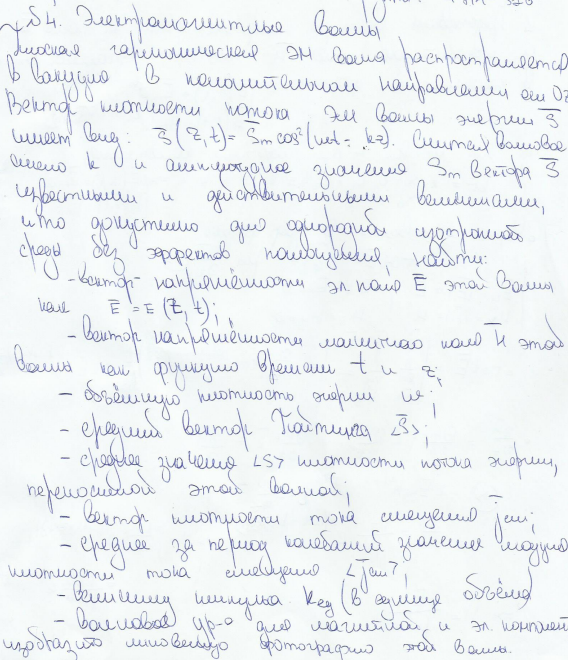 §4. Электромагнитные волны
Плоская гармоническая ЭМ волна распространяется
в вакууме в положительном направлении оси Oz
Вектор плотности потока ЭМ волны энергии S̄
имеет вид: S̄(z,t) = S̄m cos²(ωt - kz). Считая волновое
число k и амплитудное значение Sm вектора S̄
известными и действительными величинами,
что допустимо для однородной изотропной
среды без эффектов поглощения, найти:
- вектор напряжённости эл. поля Ē этой волны
как Ē = E(z, t);
- вектор напряжённости магнитного поля H̄ этой
волны как функцию времени t и z;
- объёмную плотность энергии w;
- средний вектор Пойтинга <S̄>;
- среднее значение <S> плотности потока энергии,
переносимой этой волной;
- вектор плотности тока смещения j̄см;
- среднее за период колебаний значение модуля
плотности тока смещения <j̄см>;
- величину импульса Kед (в единице объёма)
- волновое ур-е для магнитной и эл. компонент
изобразить мгновенную фотографию этой волны.